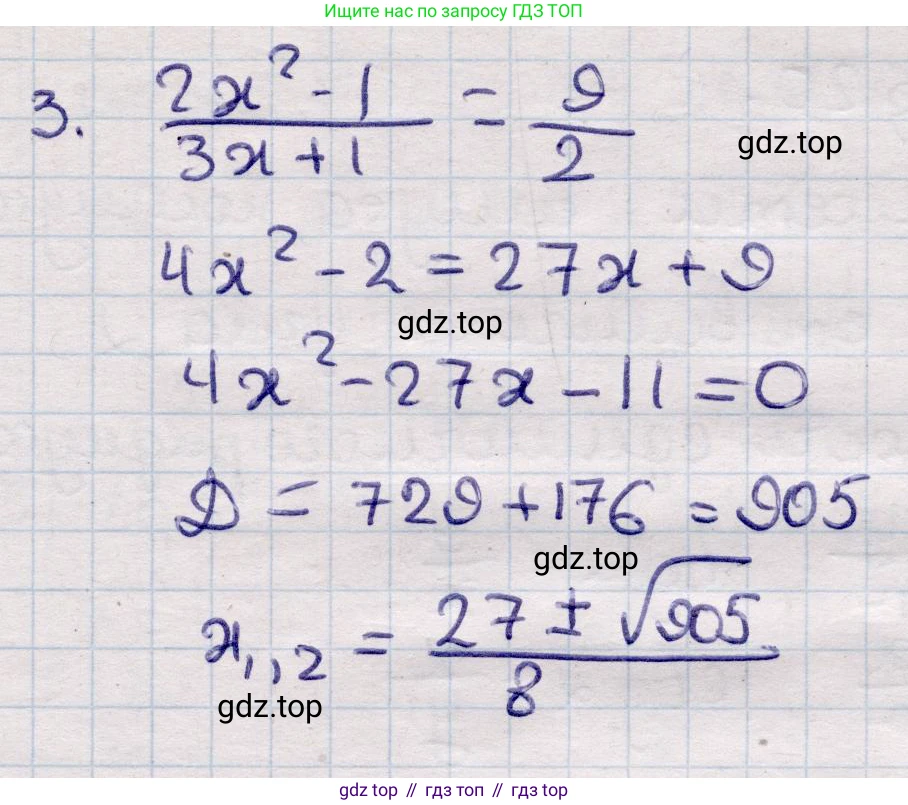 Ищите нас по запросу ГДЗ ТОП
3. (2x² - 1)/(3x + 1) = 9/2
gdz.top
4x² - 2 = 27x + 9
gdz.top
4x² - 27x - 11 = 0
D = 729 + 176 = 905
gdz.top
x₁,₂ = (27 ± √905)/8
gdz.top
gdz top // гдз топ // gdz top